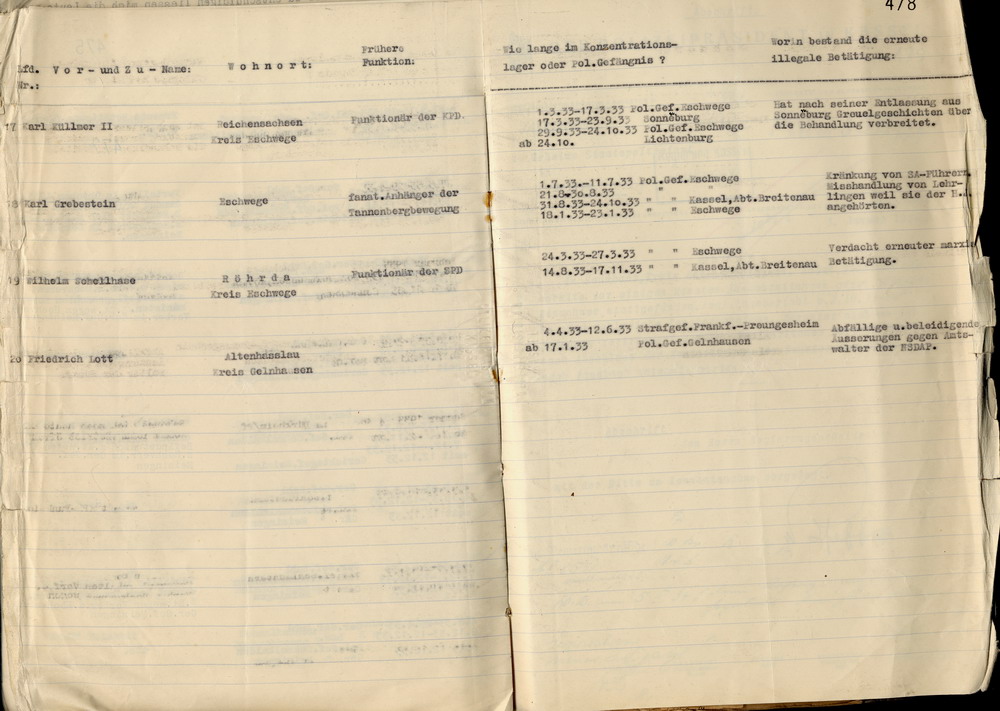 478
Lfd. Vor- und Zu-Name: Wohnort: Frühere Funktion: Wie lange im Konzentrations- Worin bestand die erneute
Nr.: lager oder Pol.Gefängnis ? illegale Betätigung:
17 Karl Küllmer II Reichensachsen Funktionär der KPD. 1.3.33-17.3.33 Pol.Gef.Eschwege Hat nach seiner Entlassung aus
Kreis Eschwege 17.3.33-23.9.33 Sonneburg Sonneburg Greuelgeschichten über
29.9.33-24.10.33 Pol.Gef.Eschwege die Behandlung verbreitet.
ab 24.10. Lichtenburg
18 Karl Grebestein Eschwege fanat.Anhänger der 1.7.33.-11.7.33 Pol.Gef.Eschwege Kränkung von SA-Führern
Tannenbergbewegung 21.8-30.8.33 " " Misshandlung von Lehr-
31.8.33-24.10.33 " " Kassel,Abt.Breitenau lingen weil sie der H.
18.1.33-23.1.33 " " Eschwege angehörten.
19 Wilhelm Schellhase Röhrda Funktionär der SPD 24.3.33-27.3.33 " " Eschwege Verdacht erneuter marxis
Kreis Eschwege 14.8.33-17.11.33 " " Kassel,Abt.Breitenau Betätigung.
20 Friedrich Lott Altenhasslau 4.4.33-12.6.33 Strafgef.Frankf.-Preungesheim Abfällige u.beleidigende
Kreis Gelnha sen ab 17.1.33 Pol.Gef.Gelnhausen Äusserungen gegen Amts-
walter der NSDAP.